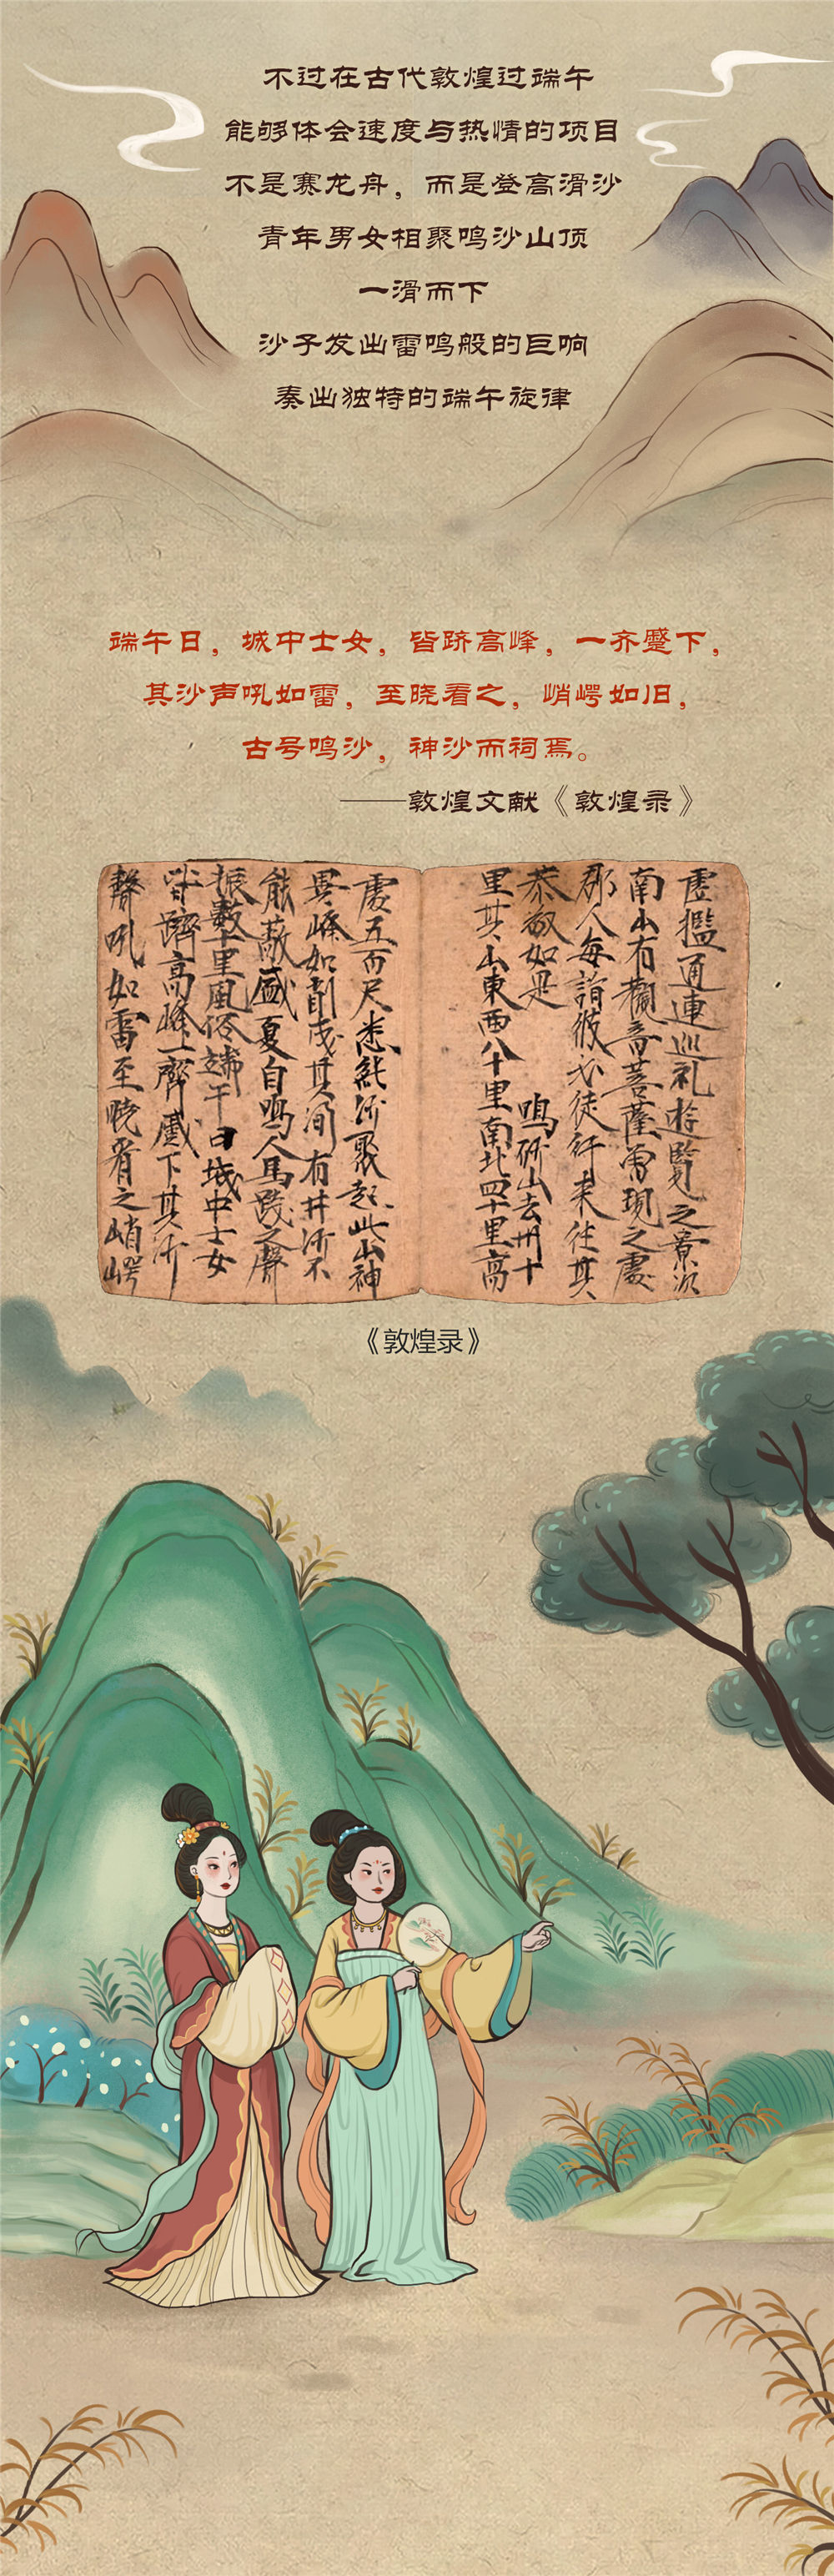 不过在古代敦煌过端午
能够体会速度与热情的项目
不是赛龙舟，而是登高滑沙
青年男女相聚鸣沙山顶
一滑而下
沙子发出雷鸣般的巨响
奏出独特的端午旋律
端午日，城中士女，皆跻高峰，一齐蹙下，
其沙声吼如雷，至晓看之，峭崿如旧，
古号鸣沙，神沙而祠焉。
——敦煌文献《敦煌录》
虚槛通连巡礼游覽之景次
南山有觀音菩薩曽現之處
郡人每詣彼必徒行来往其
恭敬如是 鳴砂山去州十
里其山東西八十里南北四十里高
處五百尺悉純沙聚起此山神
異峰如削成其间有井沙不
能蔽盛夏自鳴人馬踐之聲
振數十里風俗端午日城中士女
皆躋高峰一齊蹙下其沙
聲吼如雷至曉看之峭崿
《敦煌录》